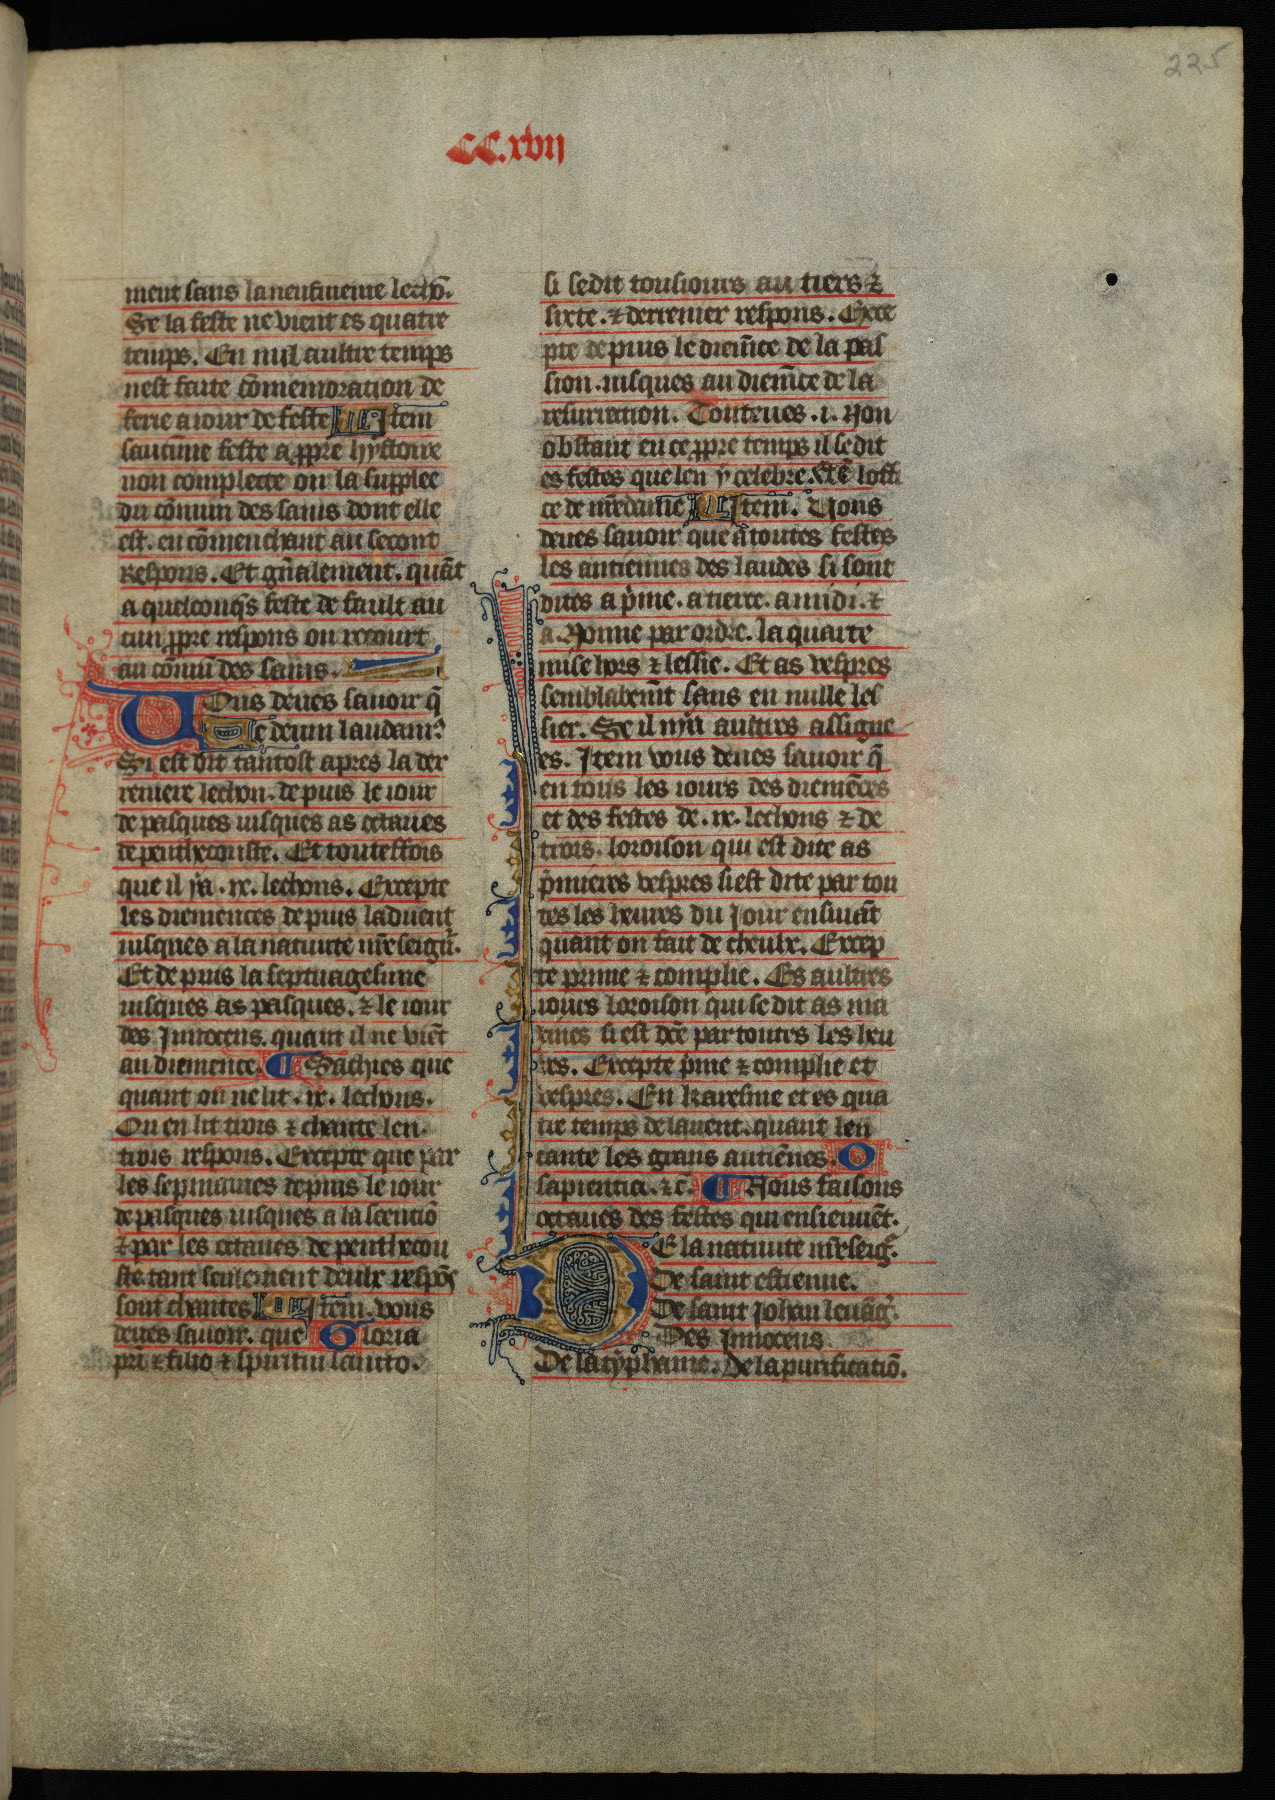 225
CC.xvij
ment sans la neufiueme lecõ.
Se la feste ne vient es quatre
temps. En nul aultre temps
nest faite cõmemoration de
ferie a iour de feste Item
saucune feste a ꝓpre hystoire
non complecte on la supplee
du cõmun des sains dont elle
est. en cõmenchant au secont
Respons. Et gñalement. quãt
a quelconq̃s feste de fault au
cun ꝓpre respons on recourt
au cõmũ des sains.
Vous deues sauoir q̃
Te deum laudam?
Si est dit tantost apres la der
reniere lechon. de puis le iour
de pasques iusques as octaues
de penthecouste. Et touteffois
que il ya .ix. lechons. Excepte
les diemences de puis laduent
iusques a la natiuite nr̃e seigñr.
Et de puis la septuagesime
iusques as pasques. ⁊ le iour
des Innocens. quant il ne viẽt
au diemence. ¶ Sachies que
quant on ne lit .ix. lechons.
On en lit trois ⁊ chante len
trois respons. Excepte que par
les sepmaines depuis le iour
de pasques iusques a la scentiõ
⁊ par les octaues de penthecou
ste. tant seulement deulx respõs
sont chantes Item. vous
deues sauoir. que Gloria
pr̃i ⁊ filio ⁊ spiritui sancto.
si se dit tousiours au tiers ⁊
sixte. ⁊ derrenier respons. Exce
pte de puis le diem̃ce de la pas
sion. iusques au diem̃ce de la
resurrection. Toutеues .i. Non
obstant en ce ꝓpre temps il se dit
es festes que len y celebre. loffi
ce de nr̃e dame Item. Vous
deues sauoir que a toutes festes
les antiennes des laudes si sont
dites a p̃me. a tierce. a midi. ⁊
a Nonne par ordre. la quarte
mise hors ⁊ lessie. Et as vespres
semblablem̃t sans en nulle les
sier. Se il ny a aultres assigne
es. Item vous deues sauoir q̃
en tous les iours des diemẽces
et des festes de .ix. lechons ⁊ de
trois. loroison qui est dite as
p̃mieres vespres si est dite par tou
tes les heures du Jour ensuiuãt
quant on fait de cheulx. Excep
te prime ⁊ complie. Es aultres
iours loroison qui se dit as ma
tines si est dc̃e par toutes les heu
res. Excepte p̃me ⁊ complie et
vespres. En karesme et es qua
tre temps de lauent. quant len
cante les grans antiẽnes. O
sapientia. ⁊c̃. ¶ Nous faisons
octaues des festes qui ensieuuẽt.
DE la natiuite nr̃e seigr̃.
De saint estienne.
De saint Johan leuãg̃.
Des Innocens.
De la typhaine. De la purificatiõ.